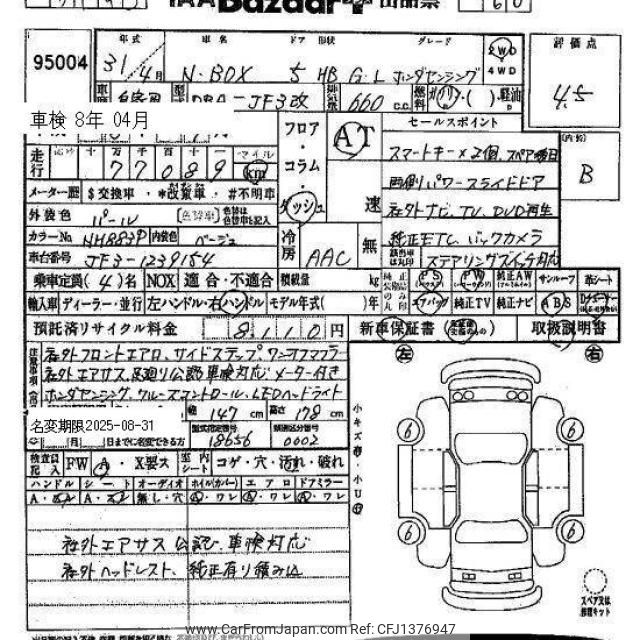 Bazaar 出品票
95004
年式 車名 ドア 形状 グレード 評価点
31年 4月 N-BOX 5 HB G・L ホンダセンシング 2WD 4WD
DBA-JF3改 排気量 660 c.c. 燃料 軽油
4.5
車検 8年 04月
フロア・コラム・ダッシュ AT 速
セールスポイント
内装 B
走行 十 万 千 百 十 一 マイル
77089 km
スマートキー×2個、スペア
両側パワースライドドア
社外ナビ、TV、DVD再生
純正ETC、バックカメラ
ステアリングスイッチ対応
メーター歴 $交換車・*改ざん車・#不明車
外装色 パール
カラーNo. NH883P 内装色 ベージュ
冷房 AAC 無
車台番号 JF3-1239154
乗車定員(4)名 NOX 適合・不適合 積載量 kg
PS PW 純正AW サンルーフ 革シート
輸入車 ディーラー・並行 左ハンドル・右ハンドル モデル年式( )年
エアバッグ 純正TV 純正ナビ ABS
預託済リサイクル料金 8110円
新車保証書 取扱説明書
左 右
注意事項
社外フロントエアロ、サイドステップ、ワンオフマフラ
社外エアサス、足廻り公認車検対応、メーター付き
ホンダセンシング、クルーズコントロール、LEDヘッドライト
幅 147 cm 高さ 178 cm
名変期限2025-08-31
型式指定番号 18656 類別区分番号 0002
月 日までに名変できる方
検査員記入 FW A・X要ス 室内シート コゲ・穴・汚れ・破れ
ハンドル シート オーディオ ホイル(カバー) エアロ ドアミラー
A・スレ A・スレ 無し・穴 A・ワレ A・ワレ A・ワレ
小キズ有・小U有
6 6
6 6
社外エアサス公認、車検対応
社外ヘッドレスト、純正有り積み込
スペア又は修理キット
www.CarFromJapan.com Ref: CFJ1376947